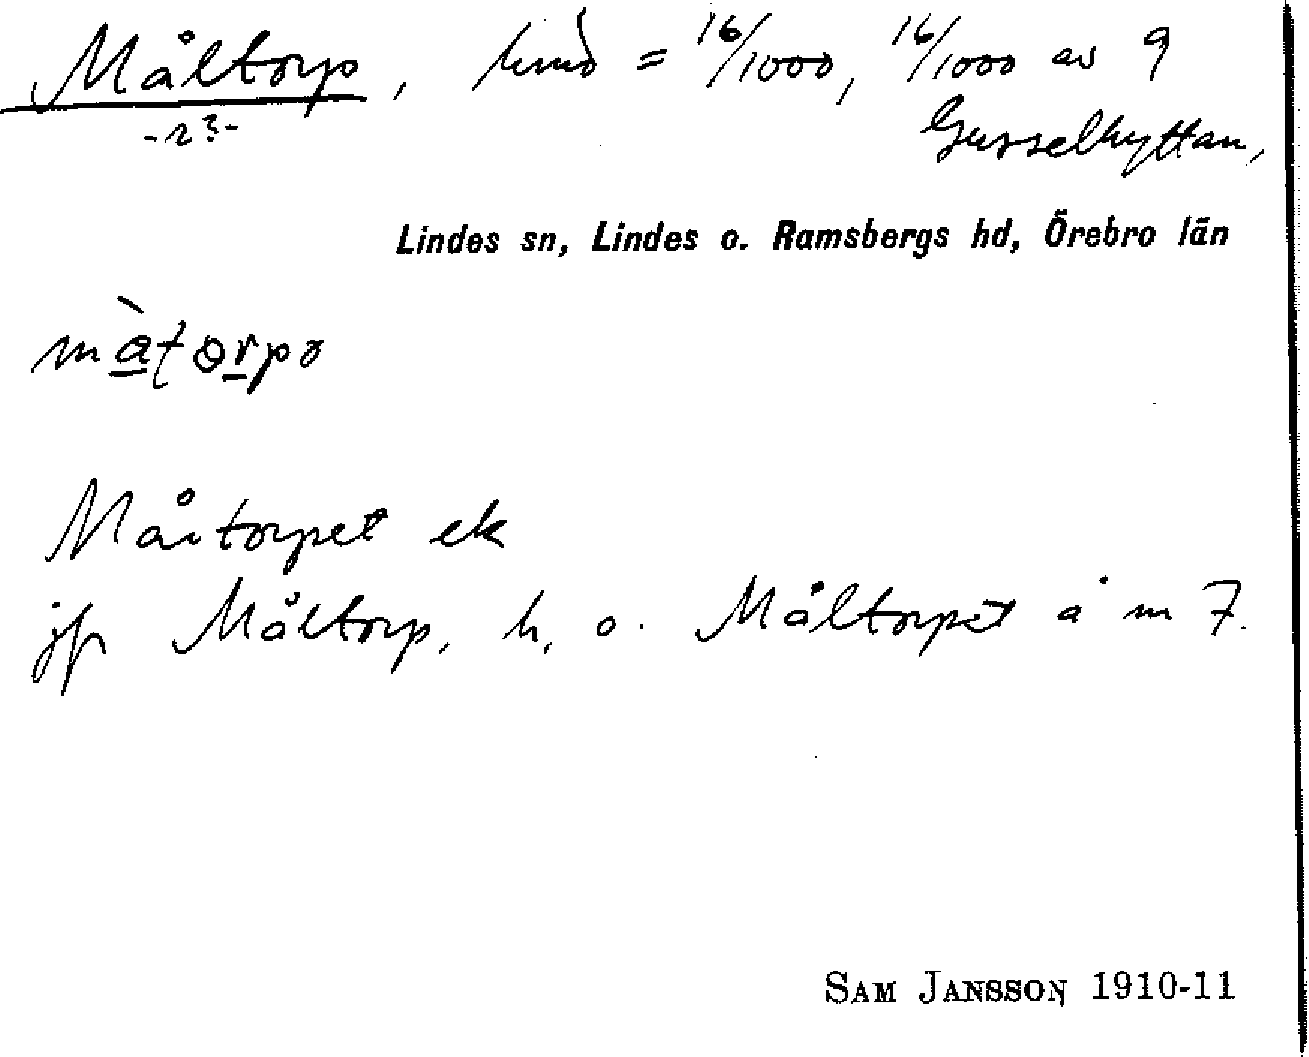 Måltorp, hmd = 16/1000, 16/1000 av 9
-23-
Gusselhyttan,
Lindes sn, Lindes o. Ramsbergs hd, Örebro län
Måltorpet ek
jfr Måltorp, h, o. Måltorpet å m 7.
SAM JANSSON 1910-11